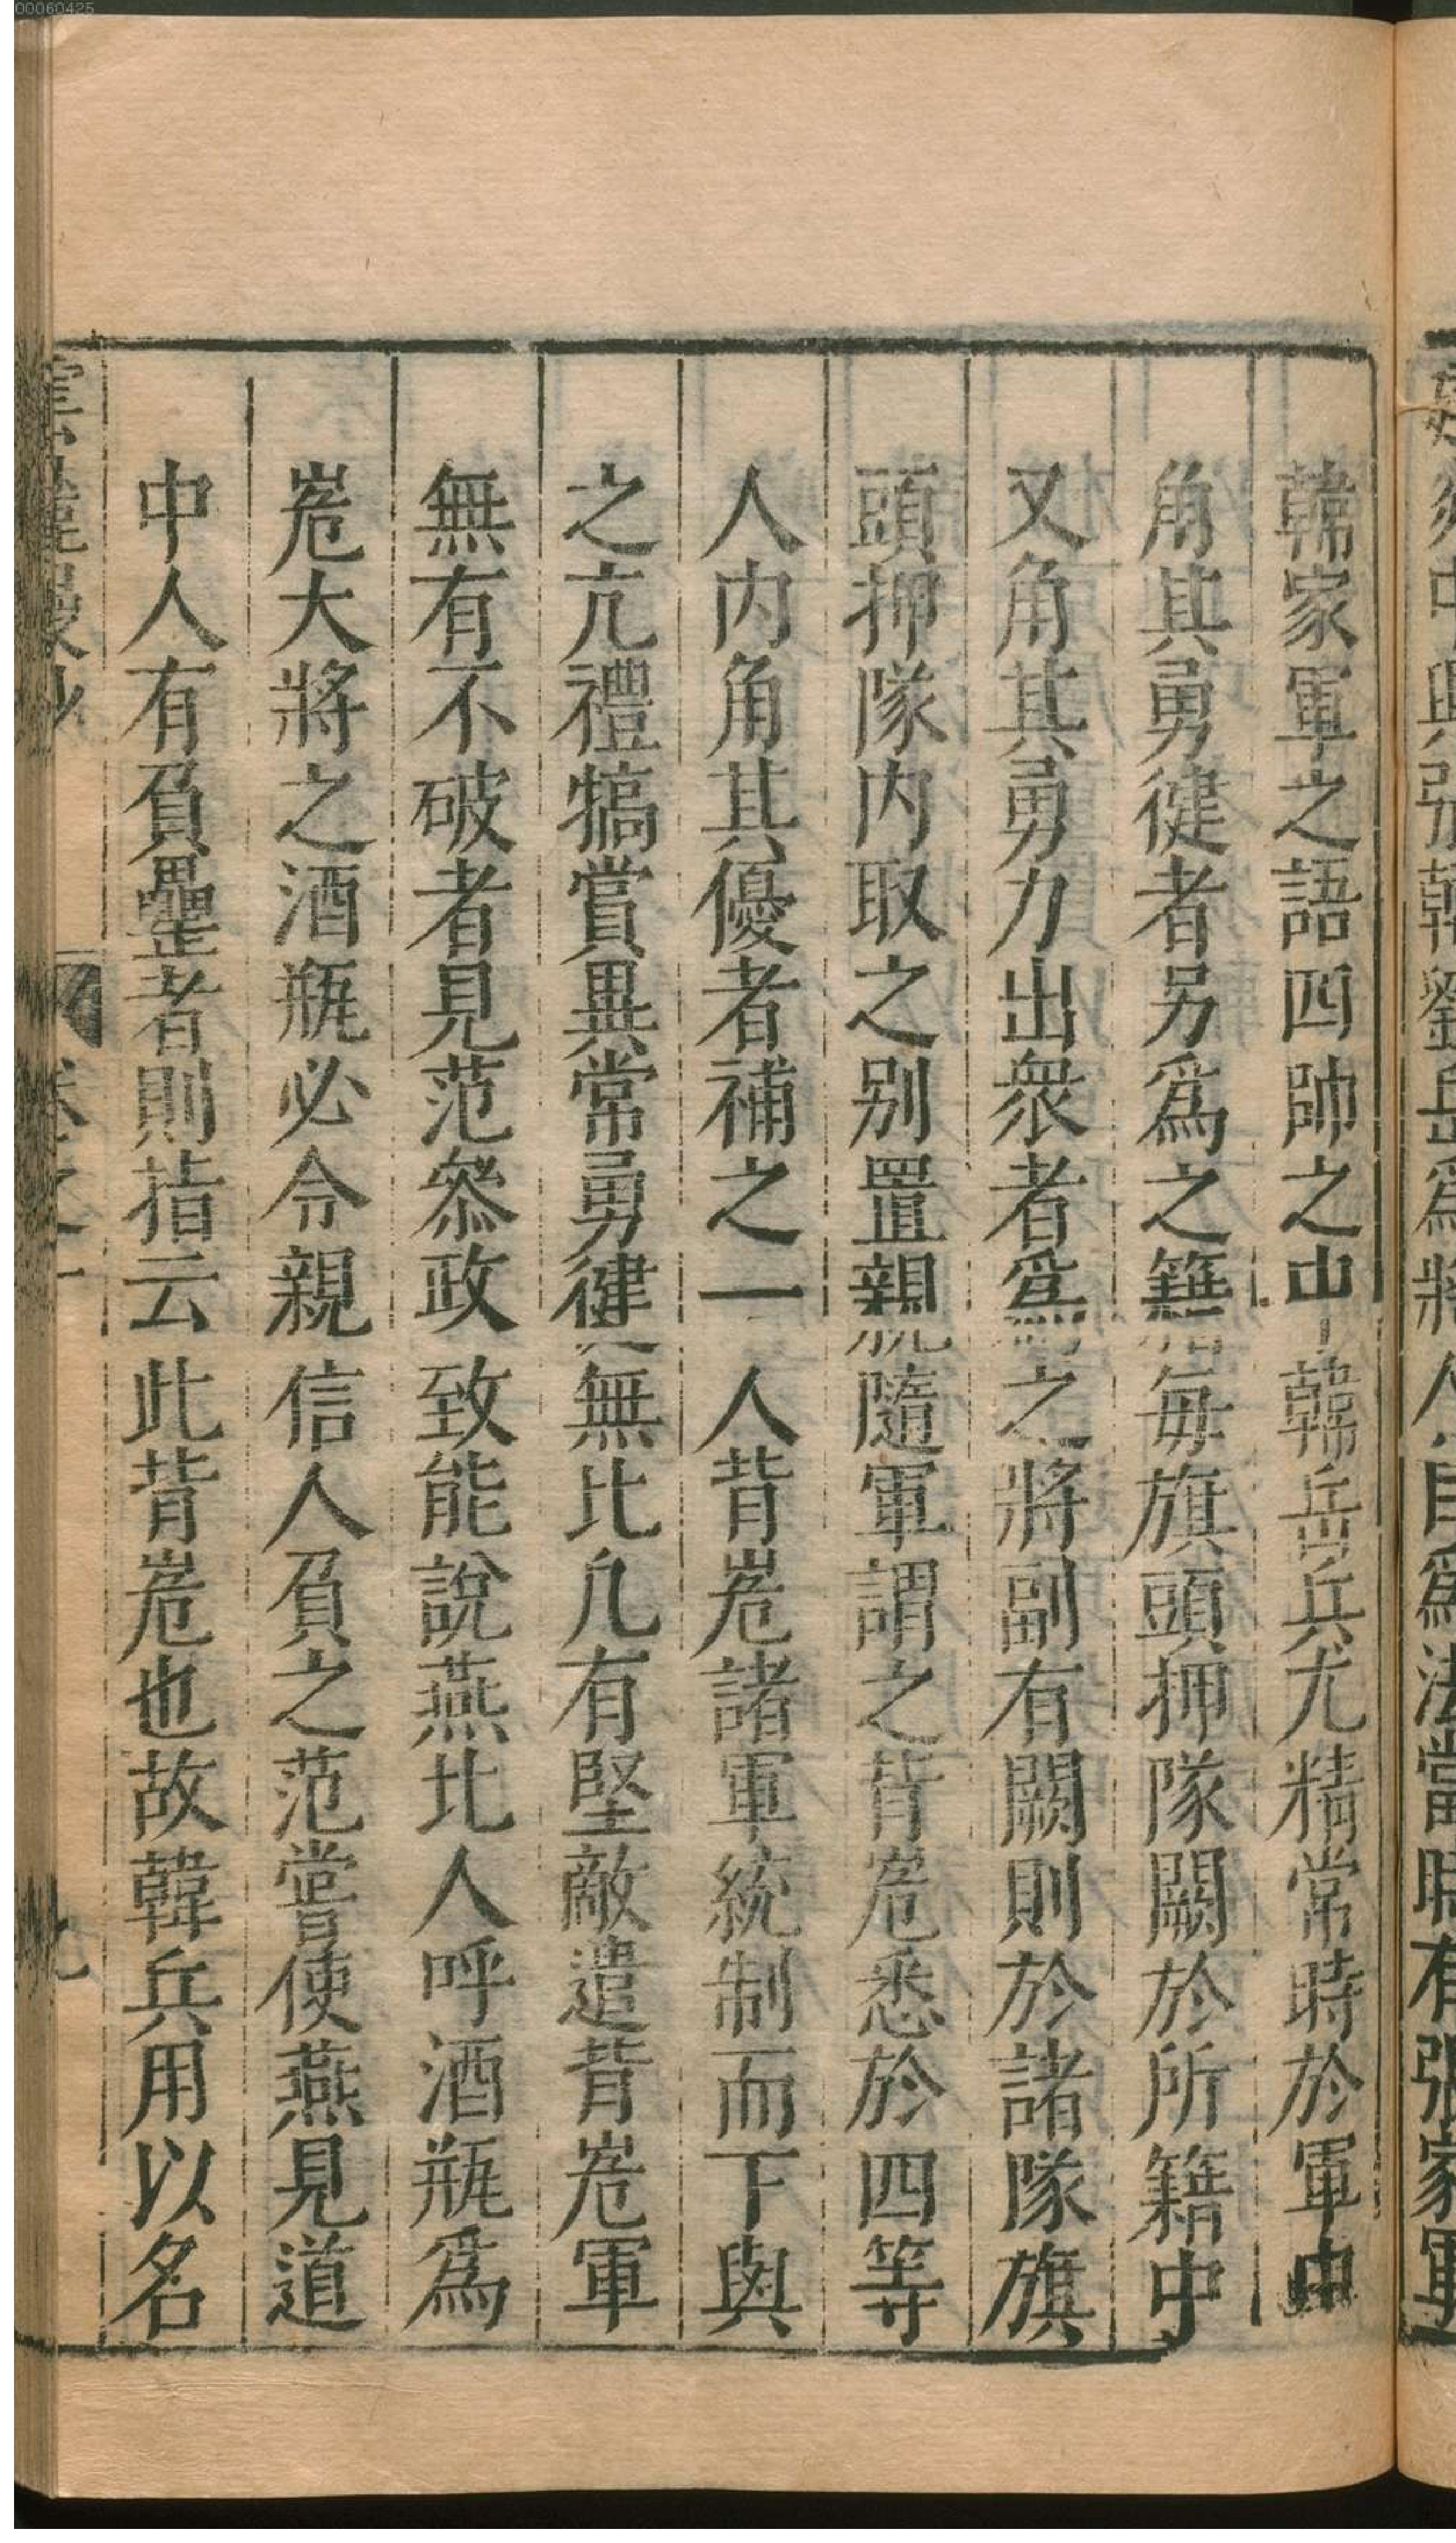 韓家軍之語四帥之中韓岳兵尤精常時於軍中
角其勇徤者另爲之籍每旗頭押隊闕於所籍中
又角其勇力出衆者爲之將副有闕則於諸隊旗
頭押隊内取之别置親隨軍謂之背嵬悉於四等
人内角其優者補之一人背嵬諸軍統制而下與
之亢禮犒賞異常勇徤無比凡有堅敵遣背嵬軍
無有不破者見范叅政致能說燕北人呼酒瓶爲
嵬大將之酒瓶必令親信人負之范嘗使燕見道
中人有負罍者則指云此背嵬也故韓兵用以名
00060425